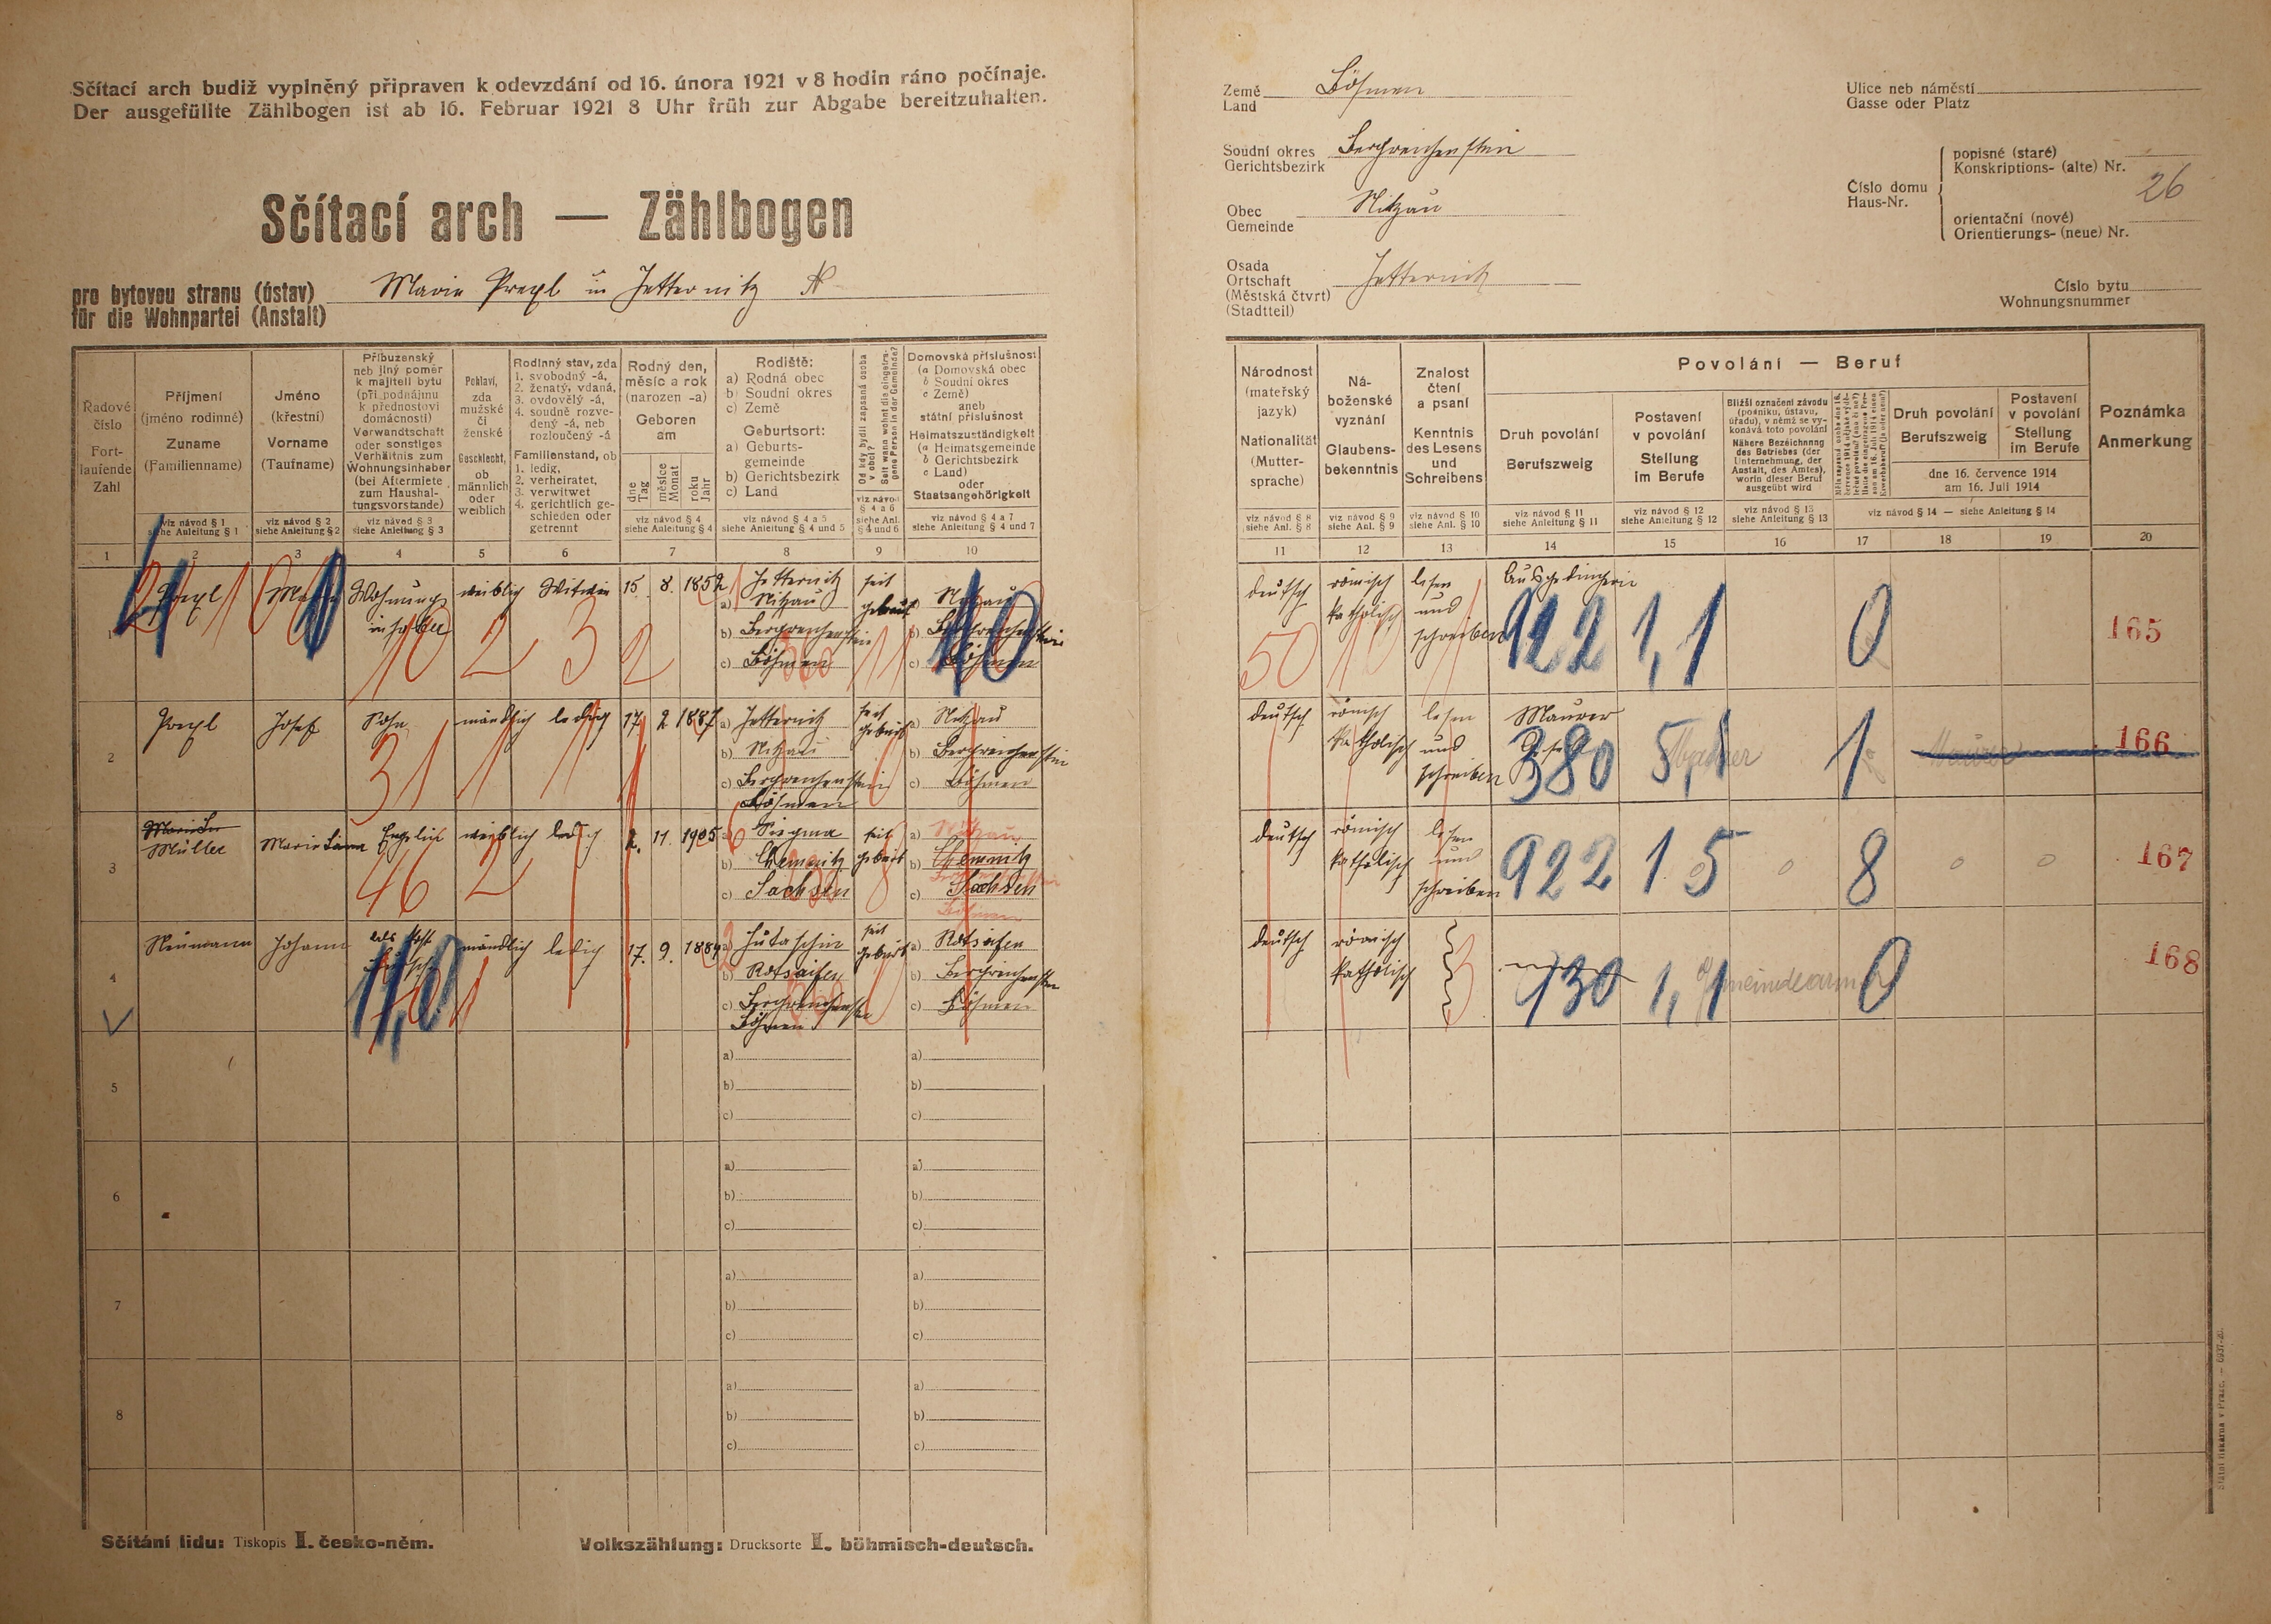 Sčítací arch budiž vyplněný připraven k odevzdání od 16. února 1921 v 8 hodin ráno počínaje.
Der ausgefüllte Zählbogen ist ab 16. Februar 1921 8 Uhr früh zur Abgabe bereitzuhalten.
Sčítací arch — Zählbogen
pro bytovou stranu (ústav)
für die Wohnpartei (Anstalt)
Marie in Jetternitz
Země
Land
Böhmen
Soudní okres
Gerichtsbezirk
Bergreichenstein
Obec
Gemeinde
Nitzau
Osada
Ortschaft
(Městská čtvrt)
(Stadtteil)
Jetternitz
Ulice neb náměstí
Gasse oder Platz
Číslo domu
Haus-Nr.
popisné (staré)
Konskriptions- (alte) Nr.
26
orientační (nové)
Orientierungs- (neue) Nr.
Číslo bytu
Wohnungsnummer
Řadové
číslo
Fort-
laufende
Zahl
Příjmení
(jméno rodinné)
Zuname
(Familienname)
viz návod § 1
siehe Anleitung § 1
Jméno
(křestní)
Vorname
(Taufname)
viz návod § 2
siehe Anleitung § 2
Příbuzenský
neb jiný poměr
k majiteli bytu
(při podnájmu
k přednostovi
domácnosti)
Verwandtschaft
oder sonstiges
Verhältnis zum
Wohnungsinhaber
(bei Aftermiete
zum Haushal-
tungsvorstande)
viz návod § 3
siehe Anleitung § 3
Pohlaví,
zda
mužské
či
ženské
Geschlecht,
ob
männlich
oder
weiblich
Rodinný stav, zda
1. svobodný -á,
2. ženatý, vdaná,
3. ovdovělý -á,
4. soudně rozve-
dený -á, neb
rozloučený -á
Familienstand, ob
1. ledig,
2. verheiratet,
3. verwitwet
4. gerichtlich ge-
schieden oder
getrennt
Rodný den,
měsíc a rok
(narozen -a)
Geboren
am
dne
Tag
měsíce
Monat
roku
Jahr
viz návod § 4
siehe Anleitung § 4
Rodiště:
a) Rodná obec
b) Soudní okres
c) Země
Geburtsort:
a) Geburts-
gemeinde
b) Gerichtsbezirk
c) Land
viz návod § 4 a 5
siehe Anleitung § 4 und 5
Od kdy bydlí zapsaná osoba
v obci?
Seit wann wohnt die eingetra-
gene Person in der Gemeinde?
viz návod
§ 4 a 6
siehe Anl.
§ 4 und 6
Domovská příslušnost
(a Domovská obec
b Soudní okres
c Země)
aneb
státní příslušnost
Heimatszuständigkeit
(a Heimatsgemeinde
b Gerichtsbezirk
c Land)
oder
Staatsangehörigkeit
viz návod § 4 a 7
siehe Anleitung § 4 und 7
Národnost
(mateřský
jazyk)
Nationalität
(Mutter-
sprache)
viz návod § 8
siehe Anl. § 8
Ná-
boženské
vyznání
Glaubens-
bekenntnis
viz návod § 9
siehe Anl. § 9
Znalost
čtení
a psaní
Kenntnis
des Lesens
und
Schreibens
viz návod § 10
siehe Anl. § 10
Povolání — Beruf
Druh povolání
Berufszweig
viz návod § 11
siehe Anleitung § 11
Postavení
v povolání
Stellung
im Berufe
viz návod § 12
siehe Anleitung § 12
Bližší označení závodu
(podniku, ústavu,
úřadu), v němž se vy-
konává toto povolání
Nähere Bezeichnung
des Betriebes (der
Unternehmung, der
Anstalt, des Amtes),
worin dieser Beruf
ausgeübt wird
viz návod § 13
siehe Anleitung § 13
Druh povolání
Berufszweig
Postavení
v povolání
Stellung
im Berufe
dne 16. července 1914
am 16. Juli 1914
viz návod § 14 — siehe Anleitung § 14
Poznámka
Anmerkung
1 2 3 4 5 6 7 8 9 10 11 12 13 14 15 16 17 18 19 20
weiblich Witwe 15. 8. 1852
Jetternitz
a) Nitzau
b) Bergreichenstein
c) Böhmen
seit
geburt
Nitzau
b) Bergreichenstein
c) Böhmen
deutsch
römisch
katholisch
lesen
und
schreiben
Ausgedingerin
922 1,1 0
165
2 Josef Sohn männlich ledig 17. 2. 1887
a) Jetternitz
b) Nitzau
c) Bergreichenstein
Böhmen
seit
geburt
a) Nitzau
b) Bergreichenstein
c) Böhmen
deutsch
römisch
katholisch
lesen
und
schreiben
Maurer
380 5,1 1
166
3 Müller Marie weiblich ledig 2. 11. 1905
b) Chemnitz
c) Sachsen
seit
geburt
a) Nitzau
b) Chemnitz
c) Sachsen
Böhmen
deutsch
römisch
katholisch
lesen
und
schreiben
922 1 5 0 8 0 0
167
4 Neumann Johann männlich ledig 17. 9. 1884
b) Rotsaifen
c) Bergreichenstein
Böhmen
seit
geburt
a) Rotsaifen
b) Bergreichenstein
c) Böhmen
deutsch
römisch
katholisch
930 1,1 Gemeindearm 0
168
5
a)
b)
c)
a)
b)
c)
6
a)
b)
c)
a)
b)
c)
7
a)
b)
c)
a)
b)
c)
8
a)
b)
c)
a)
b)
c)
Sčítání lidu: Tiskopis I. česko-něm.
Volkszählung: Drucksorte I. böhmisch-deutsch.
Státní tiskárna v Praze. — 6937-20.